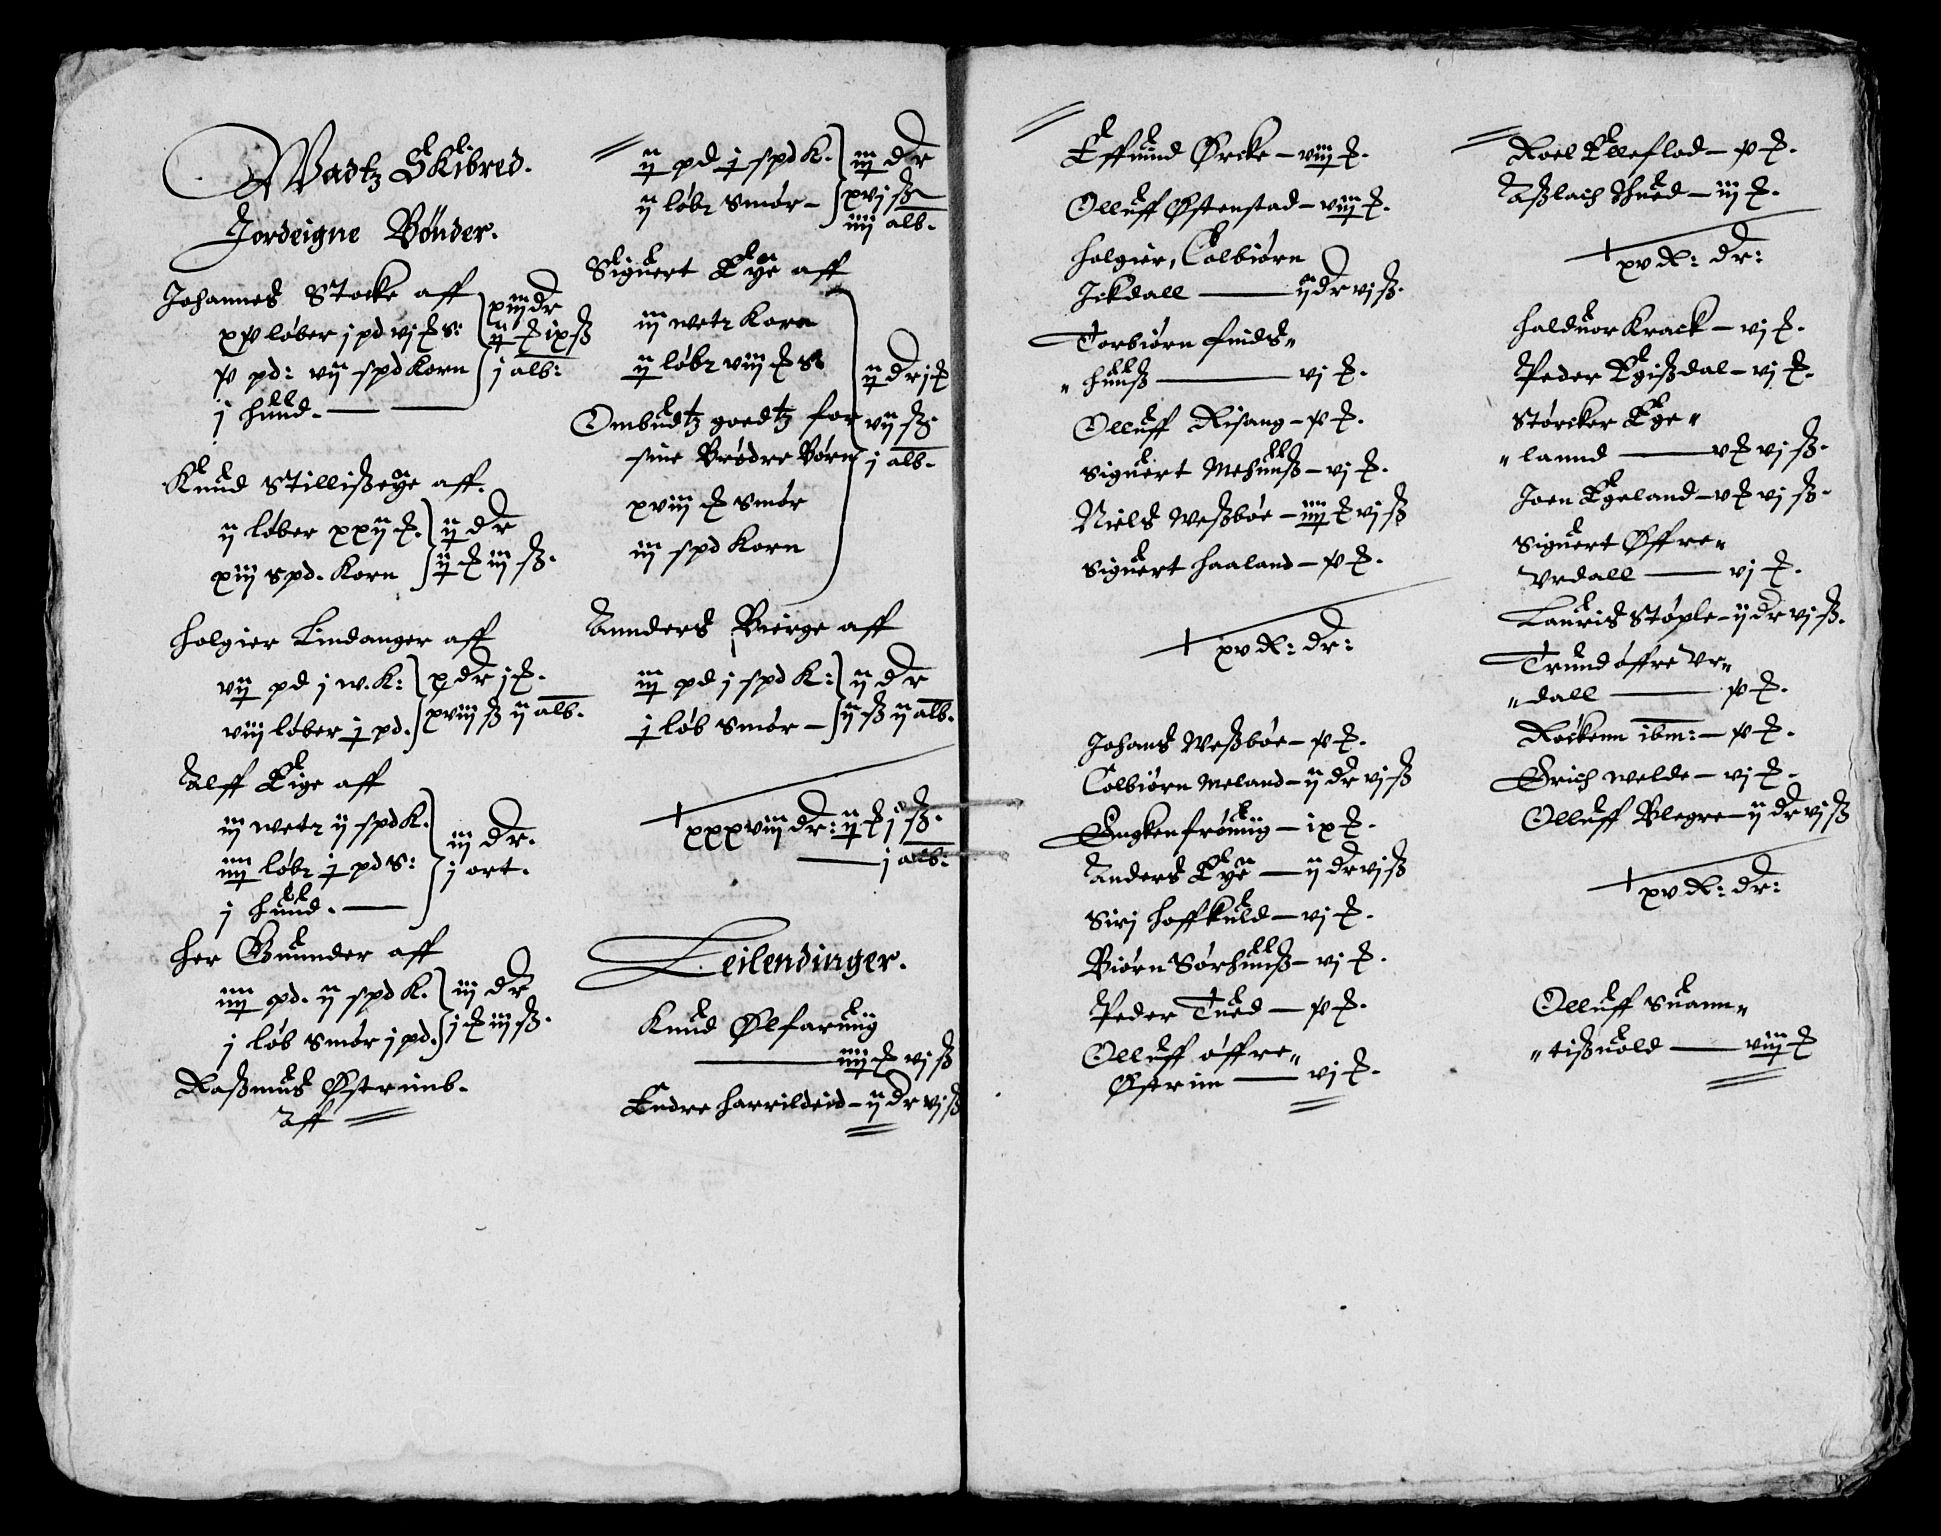 Wadtz Skibred.
Jordeigne Bønder.
Johannes Stocke aff
xv løber j pd vj ℔ S:
v pd: vij spd Korn
j huud.
xiij dr
ij ℔ ix ß
j alb:
Knud Stillißeye aff.
ij løber xxij ℔.
xiij spd. Korn
ij dr
ij ℔ iij ß.
Holgier Lindanger aff
vij pd j w. K:
viij løber j pd.
x dr j ℔.
xviij ß ij alb.
Alff Eige aff
iij wetr ij spd K.
iiij løbr j pd S:
j huud.
iij dr.
j ort.
Her Gunnder aff
iiij pd. ij spd K.
j løb Smør j pd.
iij dr
j ℔ iij ß.
Raßmus Østrimb.
Aff
ij pd j spd K.
ij løbr Smør
iij dr
xvj ß
iiij alb.
Siguert Eye aff
iij wetr Korn
ij løbr viij ℔ S
Ombudtz goedtz for
sine Brødre Børn
xviij ℔ Smør
iij spd Korn
ij dr j ℔
vij ß:
j alb.
Annders Bierge aff
iij pd j spd K:
j løb Smør
ij dr
ij ß ij alb.
xxxviij dr: ij ℔ j ß.
j alb:
Leilendinger.
Knud Ølfarniig
iiij ℔ vj ß
Endre Harrildeid – ij dr vj ß
Effuind Ørcke – viij ℔.
Olluff Østenstad – viij ℔.
Holgier, Colbiørn
Jckdall — ij dr vj ß.
Torbiørn Finds„
„ huuß — vj ℔.
Olluff Risang – v ℔.
Siguert Mehuuß – vj ℔.
Niels Weßbøe – iiij ℔ vj ß
Siguert Haaland – v ℔.
xv R: dr:
Johans Weßbøe – v ℔.
Colbiørn Meland – ij dr vj ß
Enckenfrømiig – ix ℔.
Anders Eye — ij dr vj ß
Sirj Hoffkuld – vj ℔.
Biørn Sørhuuß – vj ℔.
Peder Tued — v ℔.
Olluff øffre„
Østrim — vj ℔.
Roel Elleflod – v ℔.
Aßlach Thued – iij ℔.
xv R: dr:
Halduor Krack – vj ℔.
Peder Egißdal – vj ℔.
Størcker Ege„
„ lannd — v ℔ vj ß.
Joen Egeland – v ℔ vj ß.
Siguert Øffre„
Vrdall — vj ℔.
Lauris Støple – ij dr vj ß.
Trund øffre Vr„
„ dall — v ℔.
Røckenn ibm: – v ℔.
Erich Welde – vj ℔.
Olluff Blegre – ij dr vj ß
xv R: dr:
Olluff Suann„
„ tißuold — viij ℔